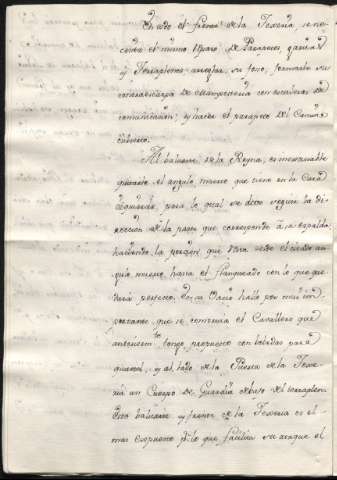 En todo el frente de la Tenería se nece
cita el mismo reparo de Parapetos,
y Terraplenes arreglar su foso, formarle su
contraescarpa de mampostería con escaleras de
comunicación; y hacer el parapeto del Camino
Cubierto.
Al baluarte de la Reyna, es inescusable
quitarle el angulo muerto que tiene en la Cara
izquierda, para lo qual se debe seguir la di-
reccion de la parte que corresponde à la espalda
haciendo la porcion que mira desde el citado an
gulo muerto, hasta el flanqueado con lo que que
dará perfecto. En su Vacío hallo por muy im
portante, que se construia el Cavallero que
antecedentem.te tengo propuesto con bobedas para
quartel, y al lado de la Puerta de la Tene
ria un Cuerpo de Guardia debajo del terraplen
Este baluarte y frente de la Teneria es el
mas expuesto p.r lo que facilita su ataque el